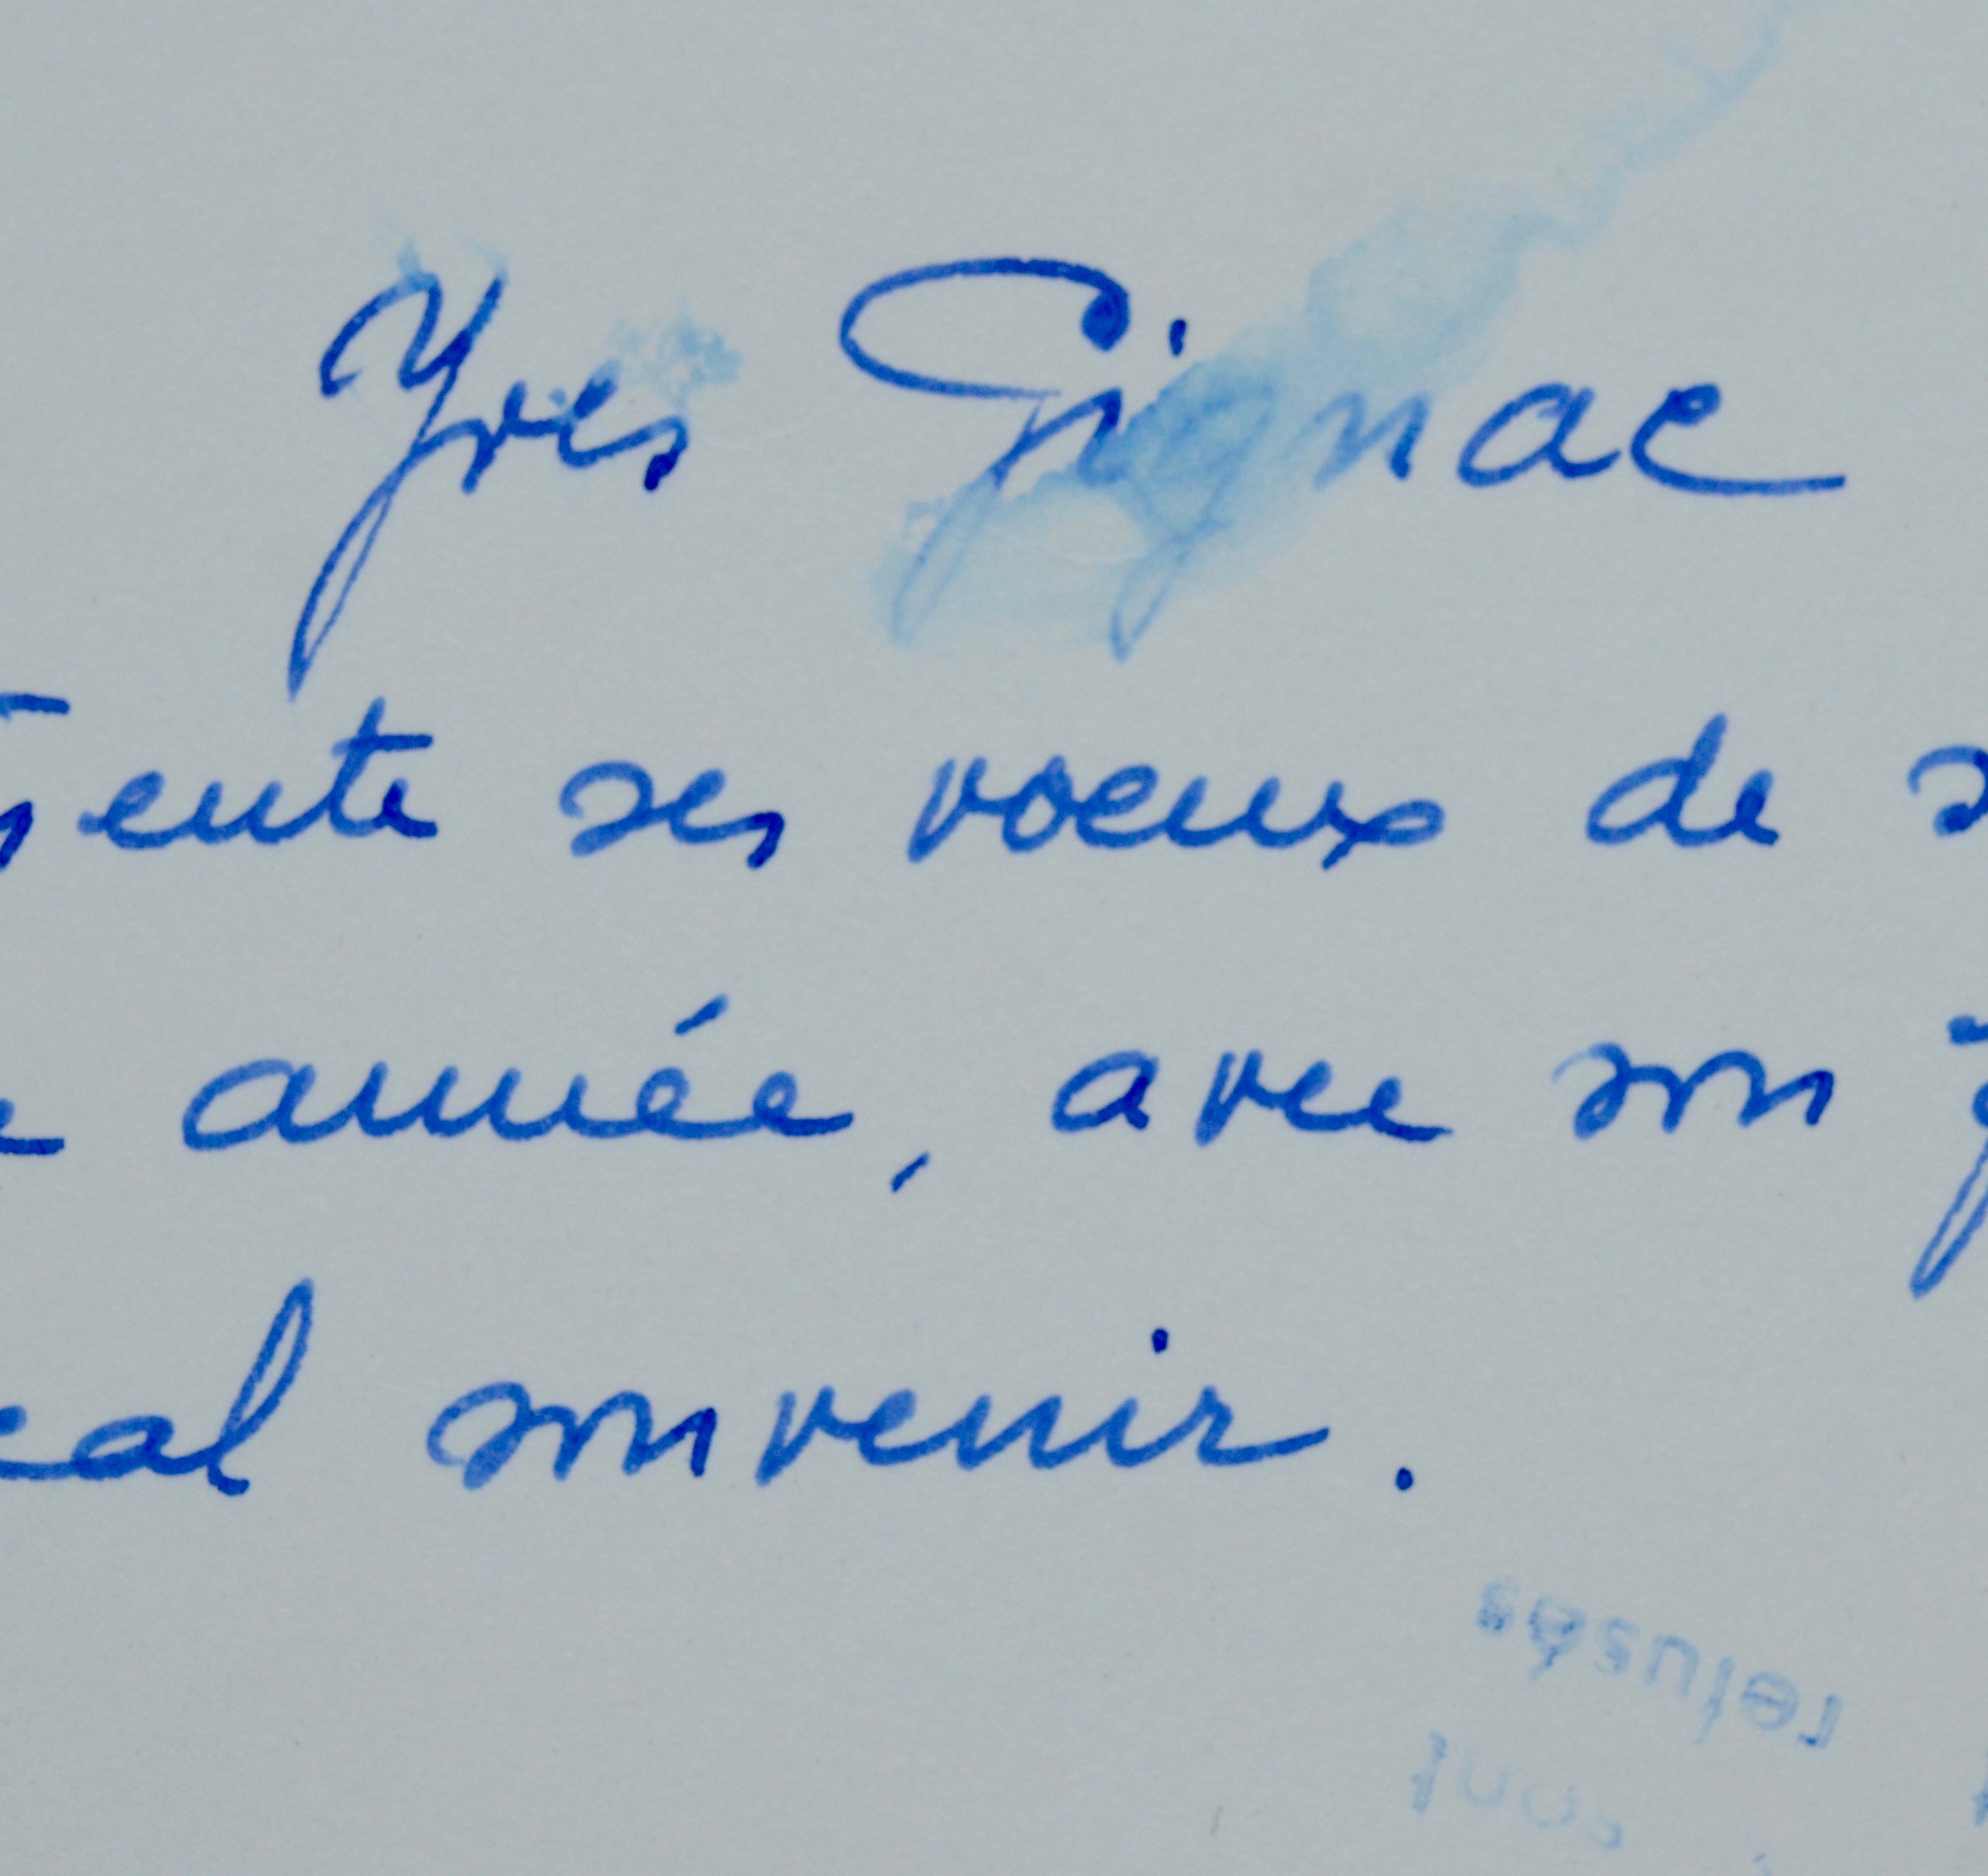 Yves Gignac
sente ses voeux de s
e année, avec son f
cal souvenir.
refusés
sont